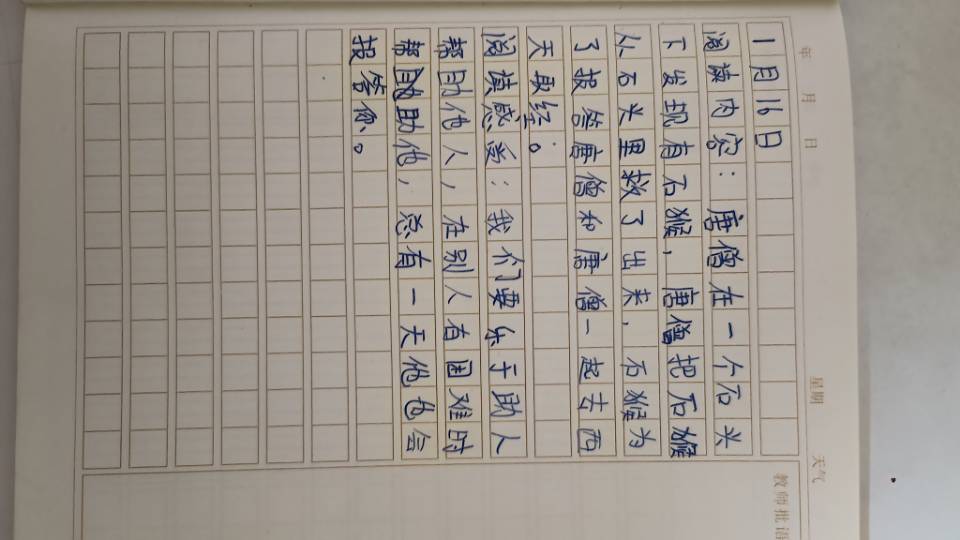 年 月 日 星期 天气
1月16日
阅读内容：唐僧在一个石头
下发现有石猴，唐僧把石猴
从石头里救了出来，石猴为
了报答唐僧和唐僧一起去西
天取经。
阅读感受：我们要乐于助人
帮助他人，在别人有困难时
帮助他，总有一天他也会
报答你。
教师批语